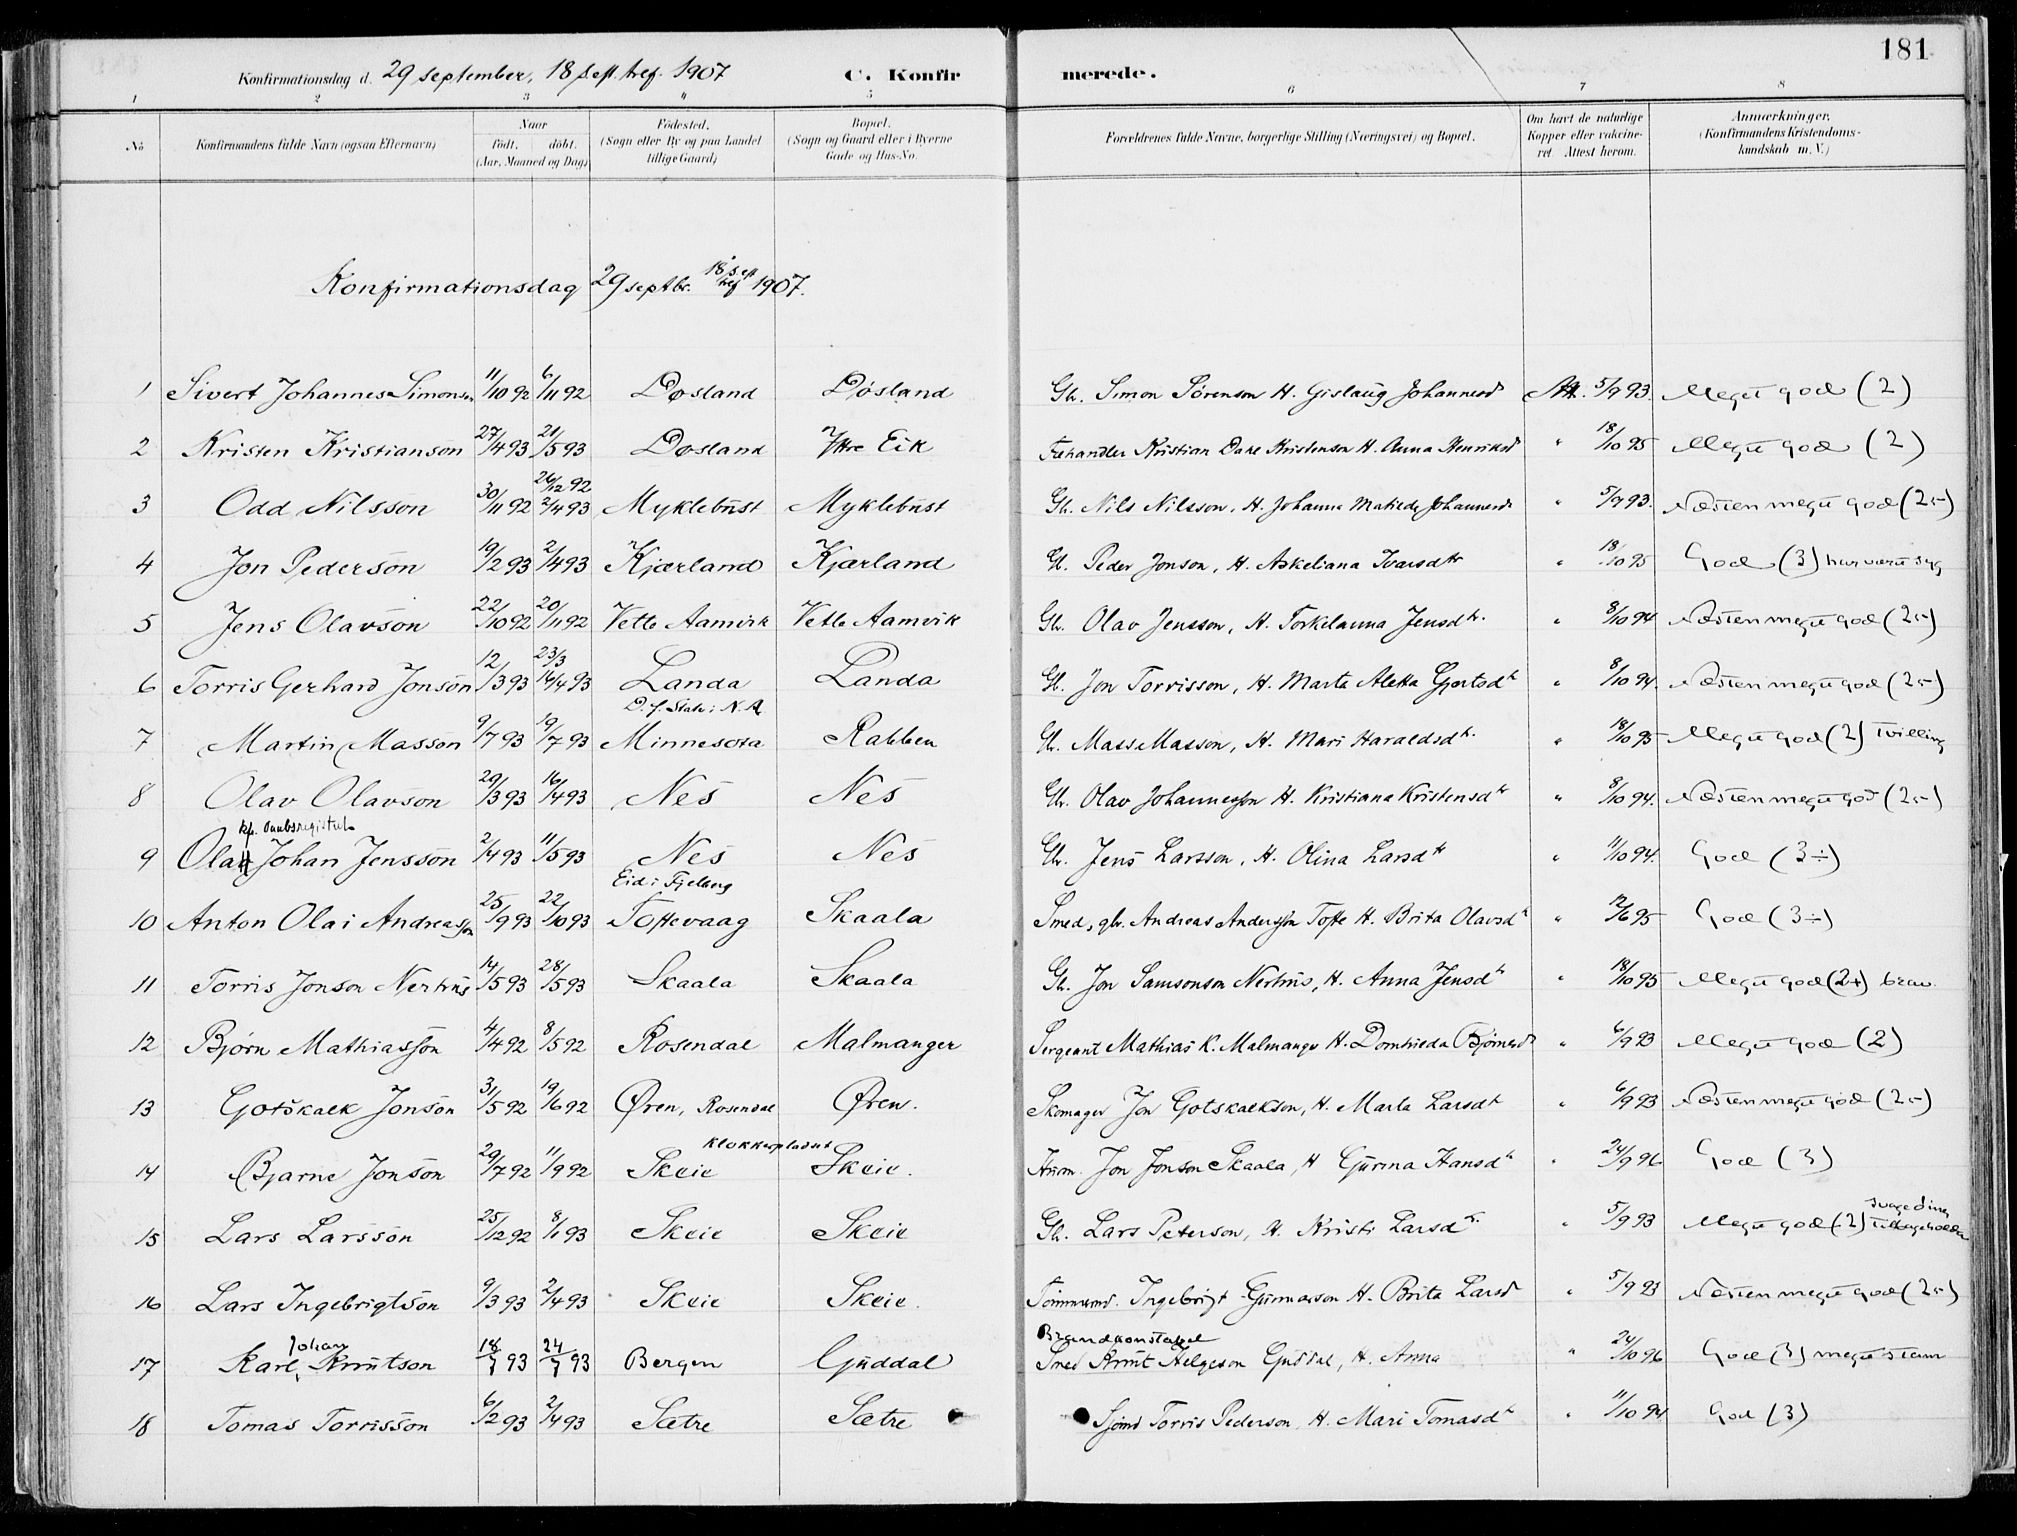 181
Konfirmationsdag d. 29 september, 18 sept. tref. 1907 C. Konfirmerede.
1 2 3 4 5 6 7 8
No Konfirmandens fulde Navn (ogsaa Efternavn) Naar født. døbt. (Aar, Maaned og Dag) Fødested. (Sogn eller By og paa Landet tillige Gaard) Bopæl. (Sogn og Gaard eller i Byerne Gade og Hus-No. Forældrenes fulde Navne, borgerlige Stilling (Næringsvei) og Bopæl. Om havt de naturlige Kopper eller vaccineret. Attest herom. Anmærkninger. (Konfirmandens Kristendomskundskab m. V.)
Konfirmationsdag 29 septbr. 18 sept tref 1907.
1 Sivert Johannes Simonsen 11/10 92 6/11 92 Døsland Døsland Gbr. Simon Sørenson H. Gislaug Johannesd Att. 5/9 93. Meget god (2)
2 Kristen Kristianson 27/4 93 21/5 93 Døsland Ytre Eik Fehandler Kristian Dale Kristenson H. Anna Henriksd " 18/10 95 Meget god (2)
3 Odd Nilsson 30/11 92 26/12 92 2/4 93 Myklebust Myklebust Gbr. Nils Nilsson, H. Johanna Matilda Johannesd " 5/9 93. Næsten meget god (2÷)
4 Jon Pederson 19/2 93 2/4 93 Kjærland Kjærland Gbr. Peder Jonson, H. Askeliana Ivarsdtr " 18/10 95 God (3) har været syg
5 Jens Olavson 22/10 92 20/11 92 Vetle Aamvik Vetle Aamvik Gbr. Olav Jensson, H. Torkelanna Jensdtr. " 8/10 94 Næsten meget god (2÷)
6 Torris Gerhard Jonson 12/3 93 23/3 16/4 93 Landa Landa Gbr. Jon Torrisson, H. Marta Aletta Gjertsdtr " 8/10 94. Næsten meget god (2÷)
D. f. Stater N. A.
7 Martin Masson 9/7 93 19/7 93 Minnesota Rabben Gbr. Mass Masson, H. Mari Haraldsdtr. " 18/10 95 Meget god (2) tvilling
8 Olav Olavson 29/3 93 16/4 93 Nes Nes Gbr. Olav Johannesson H. Kristiana Kristensdtr " 8/10 94. Næsten meget god (2÷)
9 Ola Johan Jensson 2/4 93 11/5 93 Nes Nes Gbr. Jens Larsson, H. Olina Larsdtr " 11/10 94. God (3÷)
Eid i Fjelberg
10 Anton Olai Andreasson 25/9 93 22/10 93 Toftevaag Skaala Smed, gbr. Andreas Andersson Tofte H. Brita Olavsdtr " 12/6 95 God (3÷)
11 Torris Jonson Nerhus 14/5 93 28/5 93 Skaala Skaala Gbr. Jon Samsonson Nerhus, H. Anna Jensdtr " 18/10 95 Meget god (2+) brav.
12 Bjørn Mathiasson 4/4 92 8/5 92 Rosendal Malmanger Sergeant Mathias K. Malmanger H. Domhieda Bjørnesd " 6/9 93 Meget god (2)
13 Gotskalk Jonson 31/5 92 19/6 92 Øren, Rosendal Øren. Skomager Jon Gotskalkson, H. Marta Larsdtr " 6/9 93 Næsten meget god (2÷)
Klokkerpladset
14 Bjarne Jonson 29/7 92 11/9 92 Skeie Skeie. Husm. Jon Jonson Skaala, H Gurina Hansdtr " 24/9 96 God (3)
15 Lars Larsson 25/12 92 8/1 93 Skeie Skeie Gbr. Lars Peterson, H. Kristi Larsdtr. " 5/9 93 Meget god (2)
16 Lars Ingebrigtson 9/3 93 2/4 93 Skeie Skeie. Tømmermd. Ingebrigt Gunnarson H. Brita Larsd " 5/9 93 Næsten meget god (2÷)
Johan Brandkonstabel
17 Karl Knutson 18/7 93 24/7 93 Bergen Guddal Smed Knut Helgeson Guddal, H. Anna " 24/10 96 God (3) meget stam
18 Tomas Torrisson 6/2 93 2/4 93 Sætre Sætre Sjømd Torris Pederson, H. Mari Tomasdtr " 11/10 94 God (3)